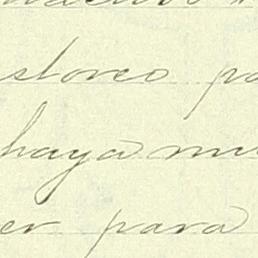 storeo pa
haya mu
er para